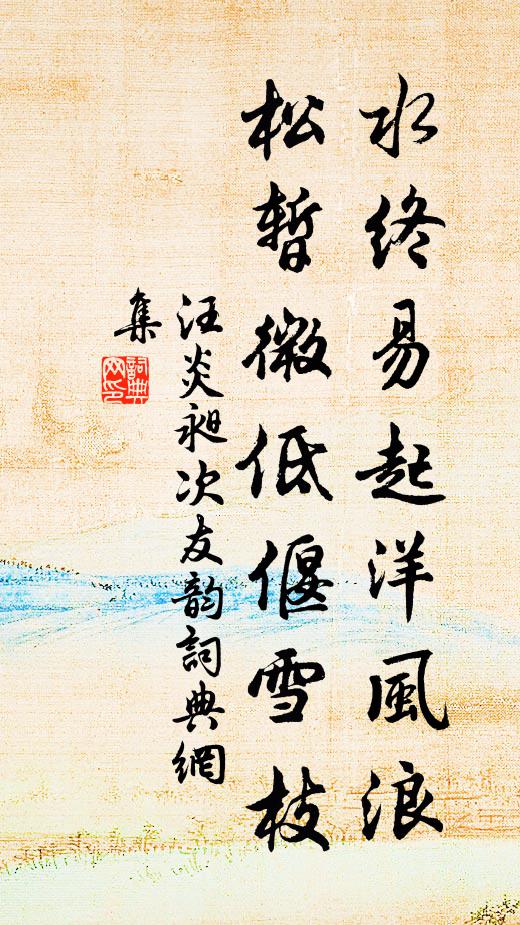 水終易起洋風浪
松暫微低偃雪枝
汪炎昶次友韵詞典網
集
詞典
网印